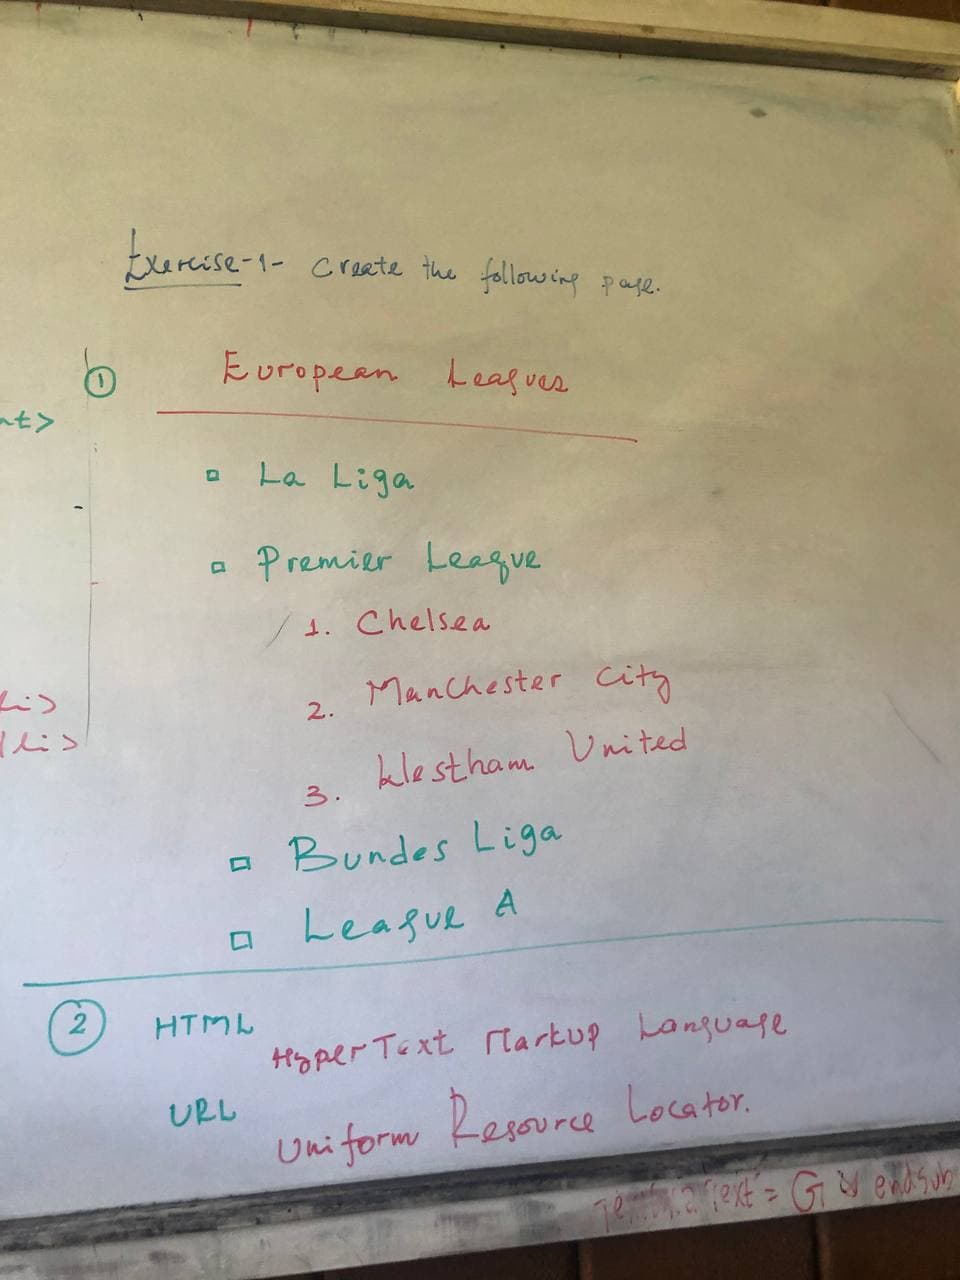 Exercise-1- Create the following page.
1 European Leagues
nt>
La Liga
Premier League
1. Chelsea
2. Manchester City
li>
3. Westham United
/li>
Bundes Liga
League A
2 HTML
HyperText Markup Language
URL
Uniform Resource Locator.
Text = G is endsub